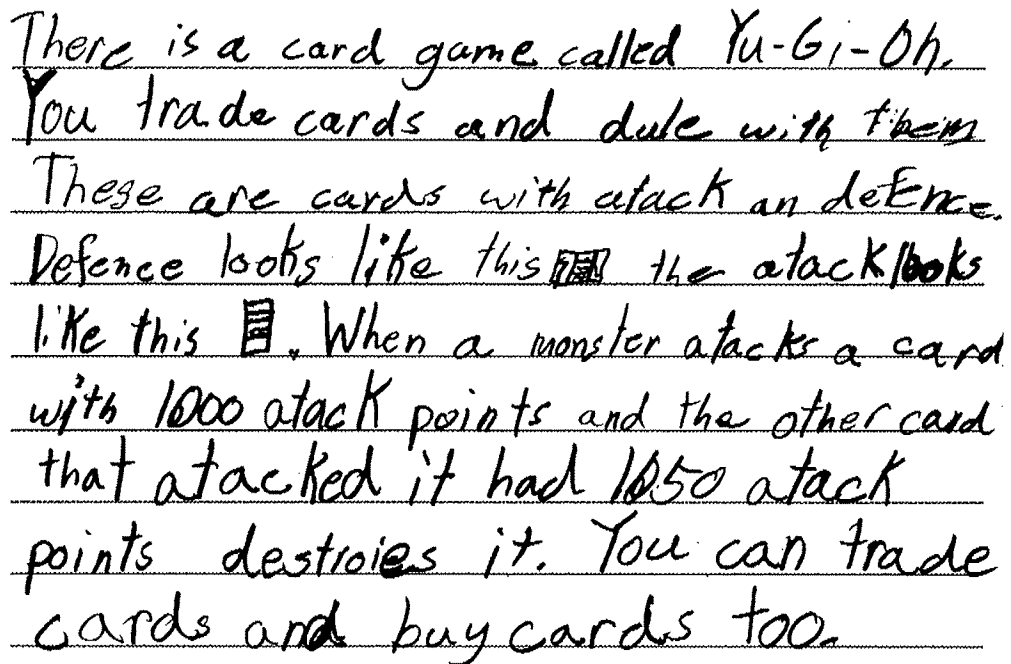 There is a card game called Yu-Gi-Oh.
You trade cards and dule with them
These are cards with atack an defence.
Defence looks like this the atack looks
like this . When a monster atacks a card
with 1000 atack points and the other card
that atacked it had 1050 atack
points destroies it. You can trade
cards and buy cards too.